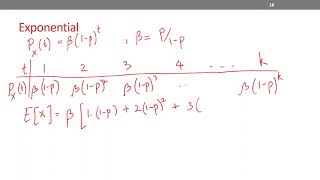 18
Exponential
P_X(t) = β(1-p)^t , β = P/1-p
t | 1 2 3 4 ... k
P_X(t) | β(1-p) β(1-p)² β(1-p)³ .. β(1-p)^k
E[X] = β [ 1·(1-p) + 2(1-p)² + 3(